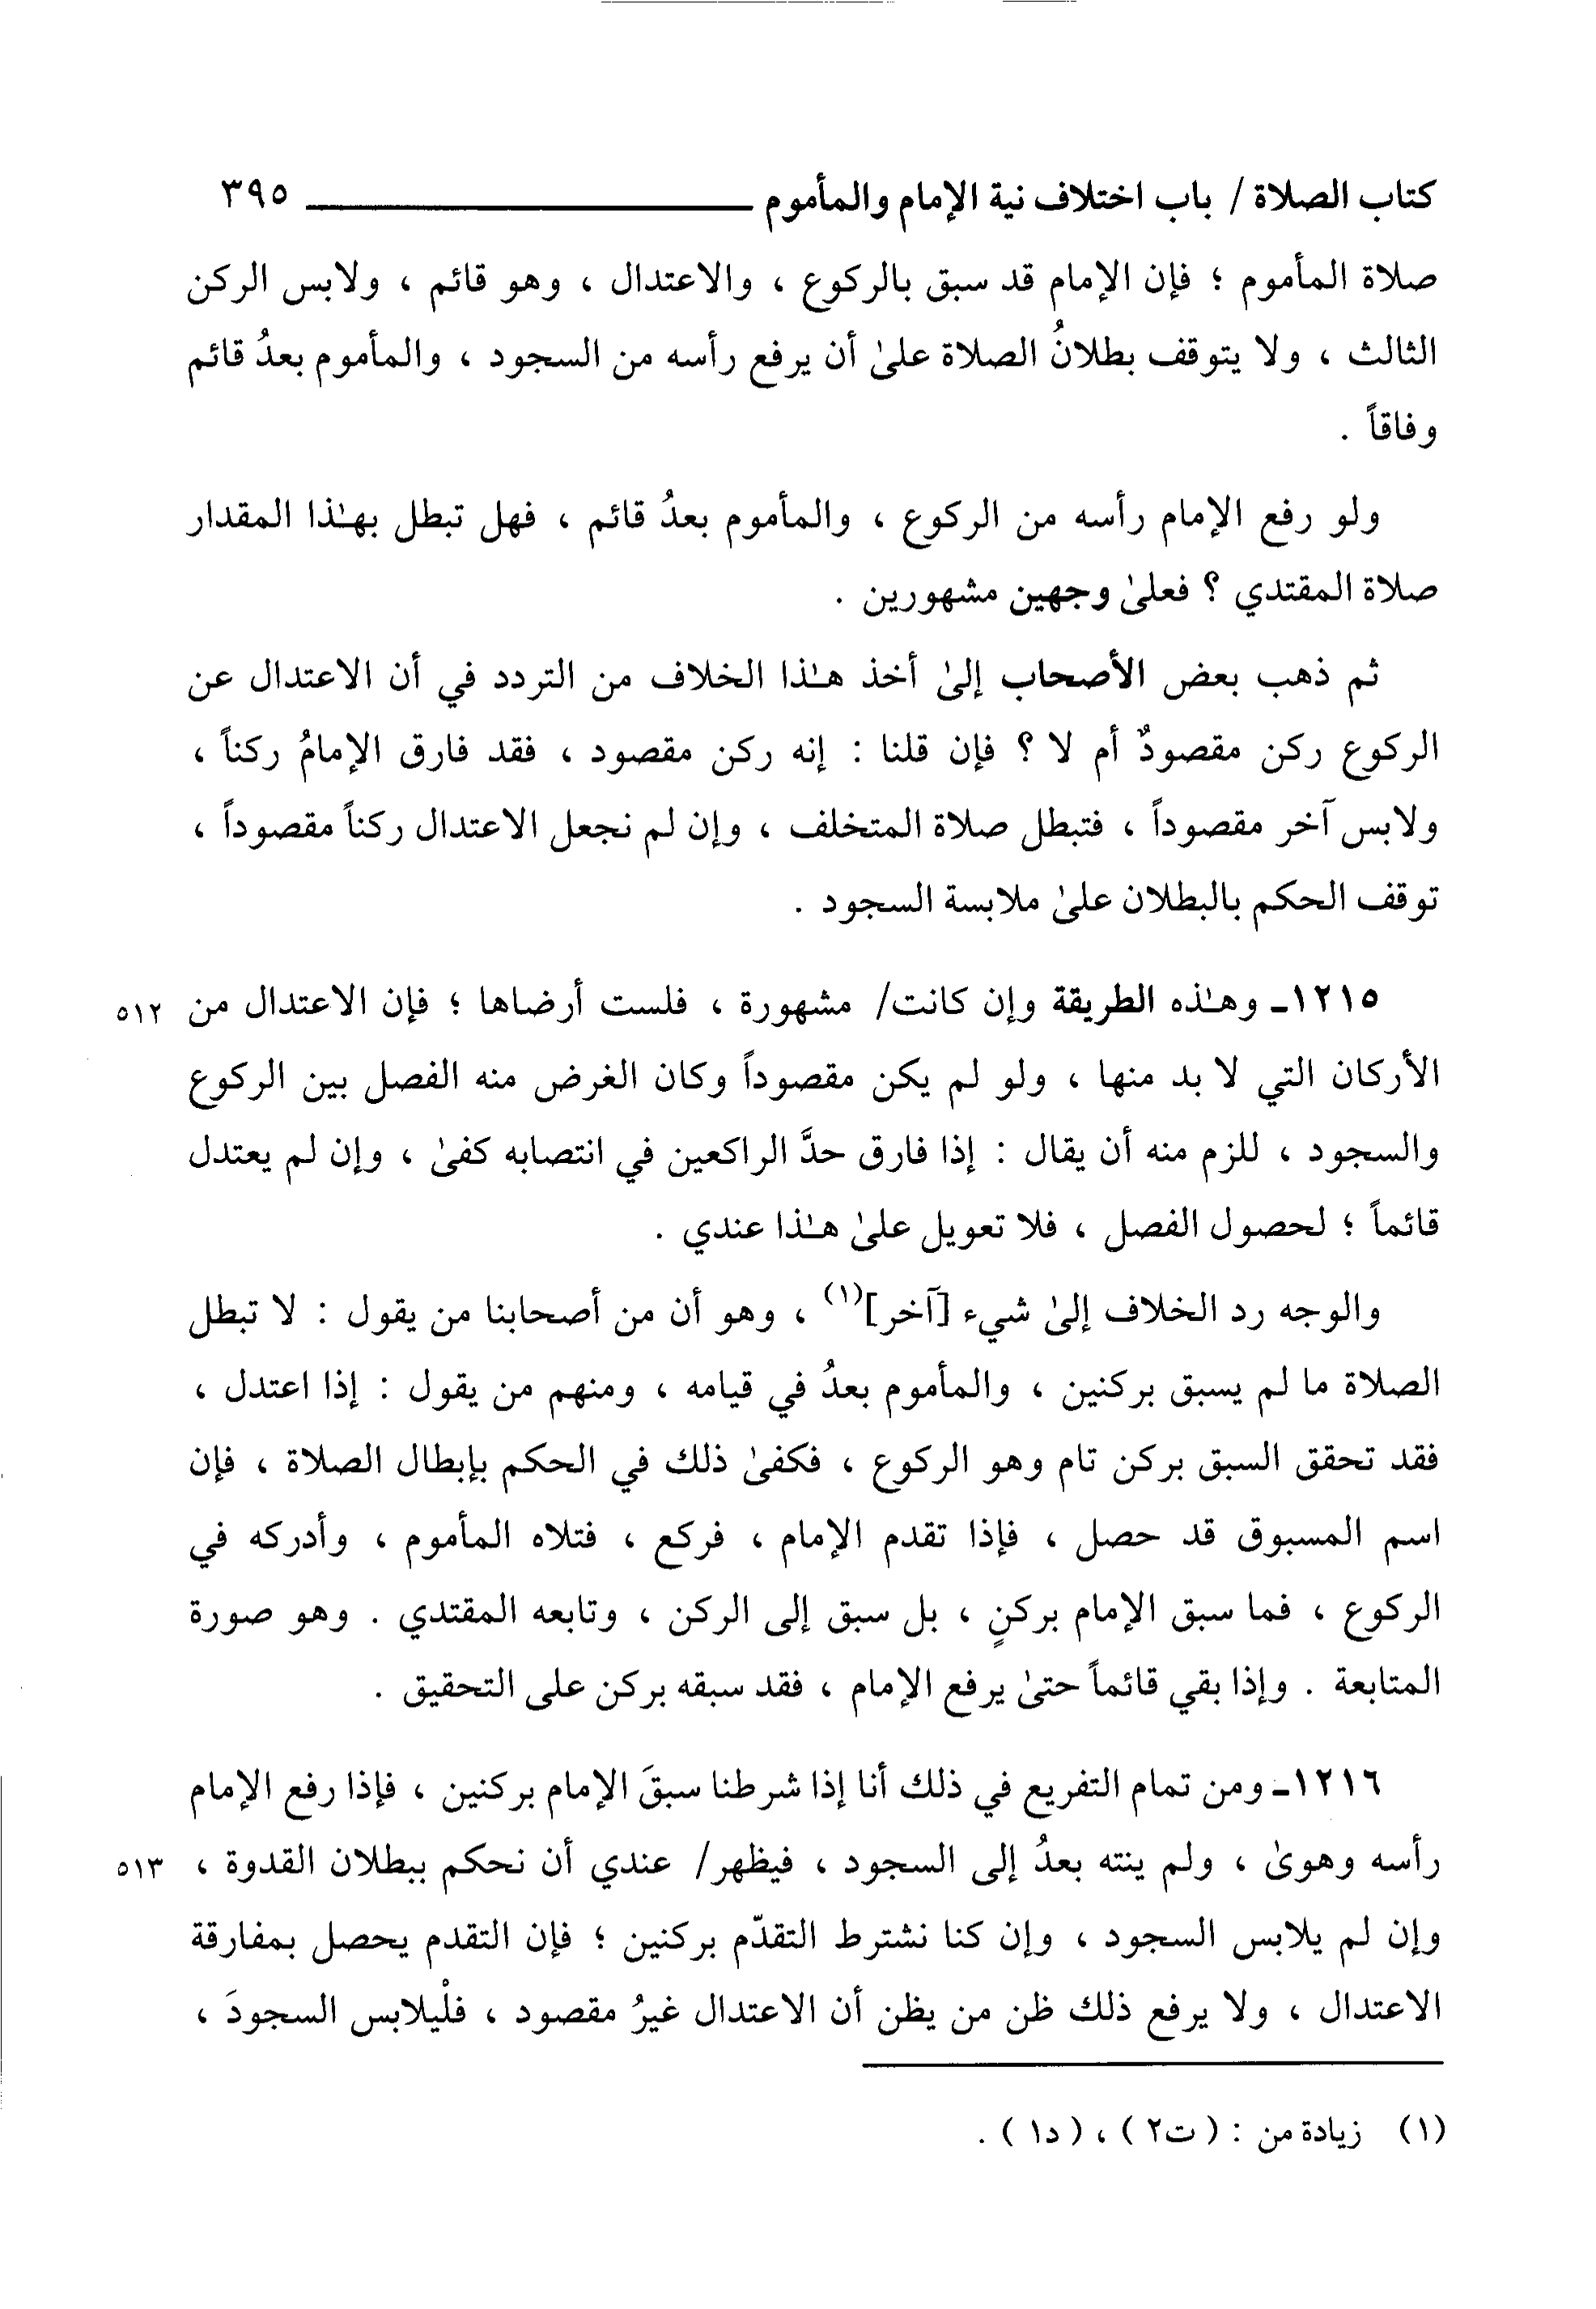 كتاب الصلاة / باب اختلاف نية الإمام والمأموم ٣٩٥
صلاة المأموم ؛ فإن الإمام قد سبق بالركوع ، والاعتدال ، وهو قائم ، ولابس الركن
الثالث ، ولا يتوقف بطلانُ الصلاة علىٰ أن يرفع رأسه من السجود ، والمأموم بعدُ قائم
وفاقاً .
ولو رفع الإمام رأسه من الركوع ، والمأموم بعدُ قائم ، فهل تبطل بهـٰذا المقدار
صلاة المقتدي ؟ فعلىٰ وجهين مشهورين .
ثم ذهب بعض الأصحاب إلىٰ أخذ هـٰذا الخلاف من التردد في أن الاعتدال عن
الركوع ركن مقصودٌ أم لا ؟ فإن قلنا : إنه ركن مقصود ، فقد فارق الإمامُ ركناً ،
ولابس آخر مقصوداً ، فتبطل صلاة المتخلف ، وإن لم نجعل الاعتدال ركناً مقصوداً ،
توقف الحكم بالبطلان علىٰ ملابسة السجود .
١٢١٥ـ وهـٰذه الطريقة وإن كانت/ مشهورة ، فلست أرضاها ؛ فإن الاعتدال من ٥١٢
الأركان التي لا بد منها ، ولو لم يكن مقصوداً وكان الغرض منه الفصل بين الركوع
والسجود ، للزم منه أن يقال : إذا فارق حدَّ الراكعين في انتصابه كفىٰ ، وإن لم يعتدل
قائماً ؛ لحصول الفصل ، فلا تعويل علىٰ هـٰذا عندي .
والوجه رد الخلاف إلىٰ شيء [آخر](١) ، وهو أن من أصحابنا من يقول : لا تبطل
الصلاة ما لم يسبق بركنين ، والمأموم بعدُ في قيامه ، ومنهم من يقول : إذا اعتدل ،
فقد تحقق السبق بركن تام وهو الركوع ، فكفىٰ ذلك في الحكم بإبطال الصلاة ، فإن
اسم المسبوق قد حصل ، فإذا تقدم الإمام ، فركع ، فتلاه المأموم ، وأدركه في
الركوع ، فما سبق الإمام بركنٍ ، بل سبق إلى الركن ، وتابعه المقتدي . وهو صورة
المتابعة . وإذا بقي قائماً حتىٰ يرفع الإمام ، فقد سبقه بركن على التحقيق .
١٢١٦ـ ومن تمام التفريع في ذلك أنا إذا شرطنا سبقَ الإمام بركنين ، فإذا رفع الإمام
رأسه وهوىٰ ، ولم ينته بعدُ إلى السجود ، فيظهر/ عندي أن نحكم ببطلان القدوة ، ٥١٣
وإن لم يلابس السجود ، وإن كنا نشترط التقدّم بركنين ؛ فإن التقدم يحصل بمفارقة
الاعتدال ، ولا يرفع ذلك ظن من يظن أن الاعتدال غيرُ مقصود ، فلْيلابس السجودَ ،
(١) زيادة من : ( ت٢ ) ، ( د١ ) .